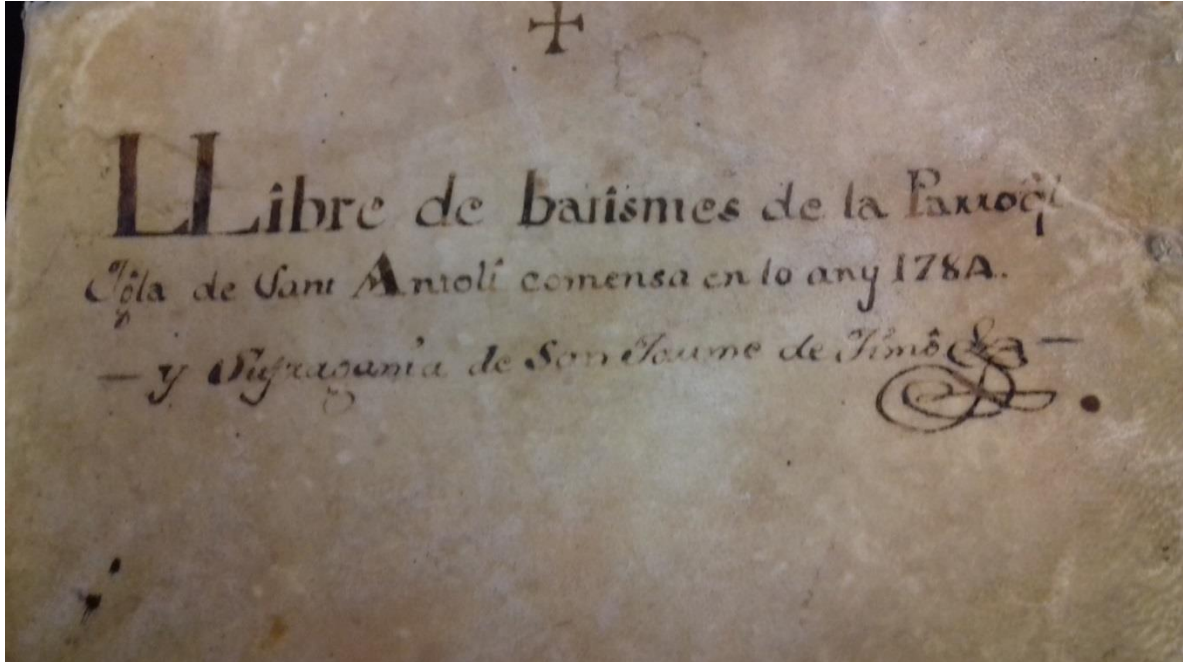 LLibre de batismes de la Parroql
Igla de Sant Antolí comensa en lo any 1784.
— y Sufragania de San Jaume de Timô &a —